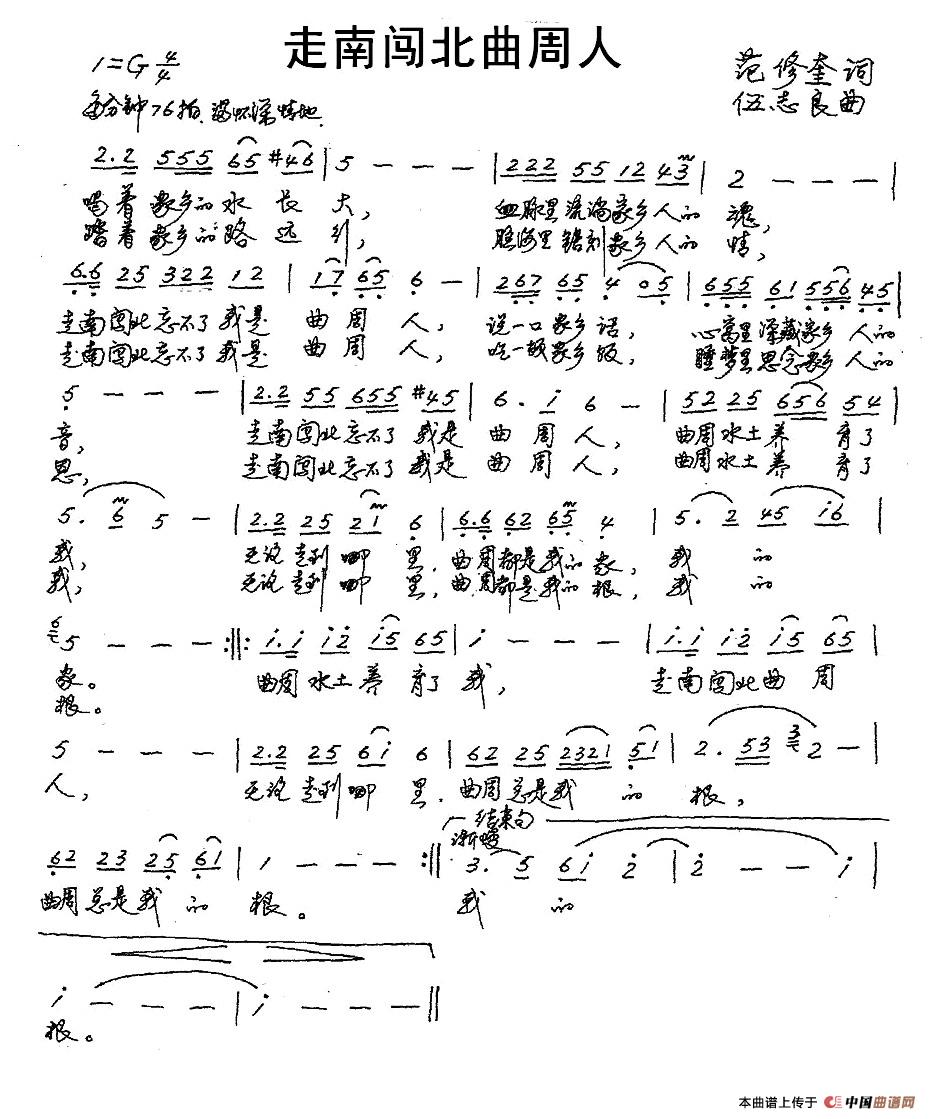 走南闯北曲周人
1=G 4/4
范修奎 词
伍志良 曲
每分钟76拍 满怀深情地
2.2 555 65 #46 | 5 - - - | 222 55 12 43 | 2 - - - |
喝着家乡的水长大, 血脉里流淌家乡人的魂,
踏着家乡的路远行, 里镌刻家乡人的情,
6.6 25 322 12 | 17 65 6 - | 267 65 4 05 | 655 61 556 45 |
走南闯北忘不了我是曲周人, 说一口家乡话, 心窝里深藏家乡人的
走南闯北忘不了我是曲周人, 吃一顿家乡饭, 睡梦里思念家乡人的
5 - - - | 2.2 55 655 #45 | 6. i 6 - | 52 25 656 54 |
音, 走南闯北忘不了我是曲周人, 曲周水土养育了
恩, 走南闯北忘不了我是曲周人, 曲周水土养育了
5. 6 5 - | 2.2 25 21 6 | 6.6 62 65 4 | 5. 2 45 i6 |
我, 无论走到哪里, 曲周都是我的家, 我的
我, 无论走到哪里, 曲周都是我的根, 我的
6 5 - - - :||: i.i i2 i5 65 | i - - - | i.i i2 i5 65 |
家。 曲周水土养育了我, 走南闯北曲周
根。
5 - - - | 2.2 25 6i 6 | 62 25 2321 51 | 2. 53 3 2 - |
人, 无论走到哪里, 曲周总是我的根,
结束句
渐慢
62 23 25 61 | 1 - - - :|| 3. 5 6i 2 | 2 - - i |
曲周总是我的根。 我的
i - - - | i - - - ||
根。
本曲谱上传于 中国曲谱网